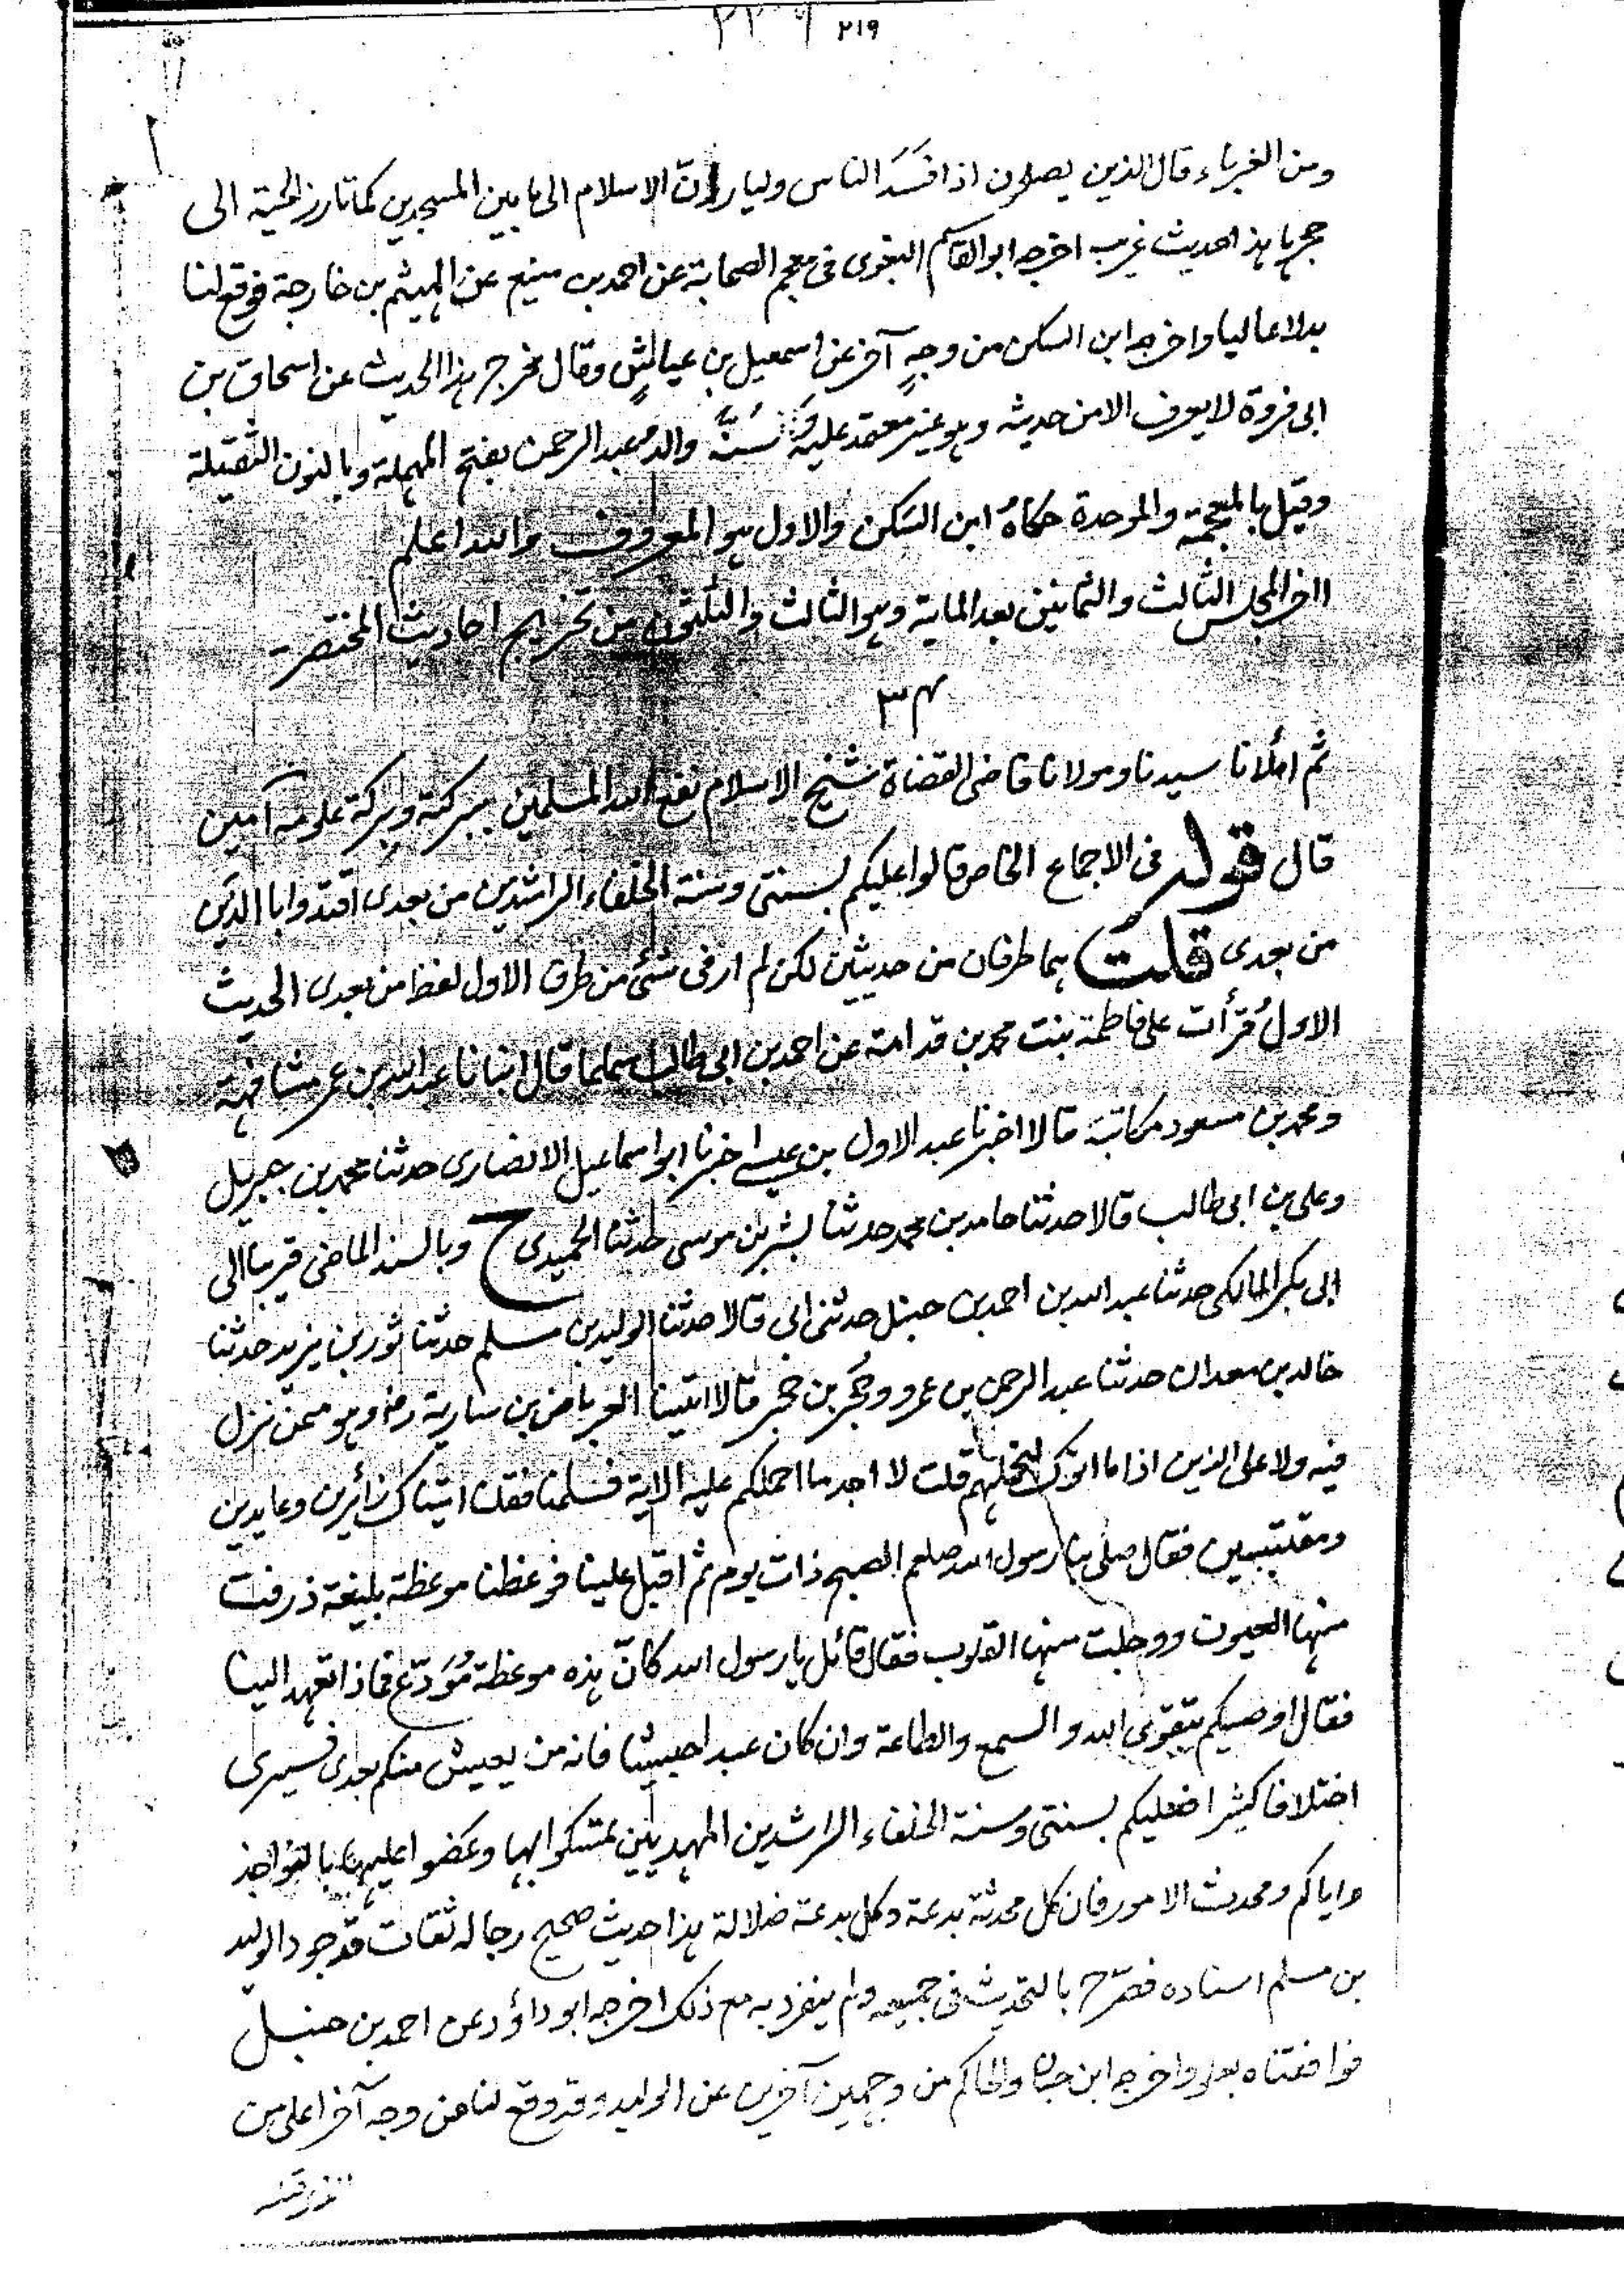 ٢١٩
ومن الغرباء قال الذين يصلون اذا فَسَدَ الناس وليارزنّ الاسلام الى ما بين المسجدين كما تارز الحية الى
جحرها هذا حديث غريب اخرجه ابو القاسم البغوى فى معجم الصحابة عن احمد بن منيع عن الهيثم بن خارجة فوقع لنا
بدلا عاليا واخرجه ابن السكن من وجهٍ آخر عن اسمعيل بن عياش وقال مخرج هذا الحديث عن اسحاق بن
ابى فروة لا يعرف الا من حديثه وهو غير معتمد عليه وَسَنَّة والد عبد الرحمن بفتح المهملة وبالنون الثقيلة
وقيل بالمعجمة والموحدة حكاهُ ابن السكن والاول هو المعروف والله اعلم
اخر المجلس الثالث والثمانين بعد الماية وهو الثالث والثلثون من تخريج احاديث المختصر
٣٤
ثم املانا سيدنا ومولانا قاضى القضاة شيخ الاسلام نفع الله المسلمين ببركته وبركة علومه آمين
قال قوله فى الاجماع الخاص قالوا عليكم بسنتى وسنة الخلفاء الراشدين من بعدى اقتدوا بالذين
من بعدى قلت هما طرفان من حديثين لكن لم ار فى شئ من طرق الاول لفظ من بعدى الحديث
الاول قرأت على فاطمة بنت محمد بن قدامة عن احمد بن ابى طالب سماعا قال انبانا عبد الله بن عمر مشافهة
ومحمد بن مسعود مكاتبة قالا اخبرنا عبد الاول بن عيسى اخبرنا ابو اسماعيل الانصارى حدثنا محمد بن جبريل
وعلى بن ابى طالب قالا حدثنا حامد بن محمد حدثنا بشر بن موسى حدثنا الحميدى ح وبالسند الماضى قريبا الى
ابى بكر المالكى حدثنا عبد الله بن احمد بن حنبل حدثنى ابى قالا حدثنا الوليد بن مسلم حدثنا ثور بن يزيد حدثنا
خالد بن معدان حدثنا عبد الرحمن بن عمرو وحُجر بن حجر قالا اتينا العرباض بن سارية رض وهو ممن نزل
فيه ولا على الذين اذا ما اتوك لتحملهم قلت لا اجد ما احملكم عليه الاية فسلمنا فقلنا اتيناك زائرين وعايدين
ومقتبسين فقال صلى بنا رسول الله صلعم الصبح ذات يوم ثم اقبل علينا فوعظنا موعظة بليغة ذرفت
منها العيون ووجلت منها القلوب فقال قائل يا رسول الله كانّ هذه موعظة مُوَدّع فماذا تعهد الينا
فقال اوصيكم بتقوى الله والسمع والطاعة وان كان عبدا حبشيا فانه من يعيش منكم بعدى فسيرى
اختلافا كثيرا فعليكم بسنتى وسنة الخلفاء الراشدين المهديين تمسكوا بها وعضوا عليها بالنواجذ
واياكم ومحدث الامور فان كل محدثة بدعة وكل بدعة ضلالة هذا حديث صحيح رجاله ثقات قد جود الوليد
بن مسلم اسناده فصرّح بالتحديث فى جميعه ولم ينفرد به مع ذلك اخرجه ابو داؤد عن احمد بن حنبل
فوافقناه بعلو واخرجه ابن حبان والحاكم من وجهين آخرين عن الوليد وقد وقع لنا من وجه آخر اعلى من